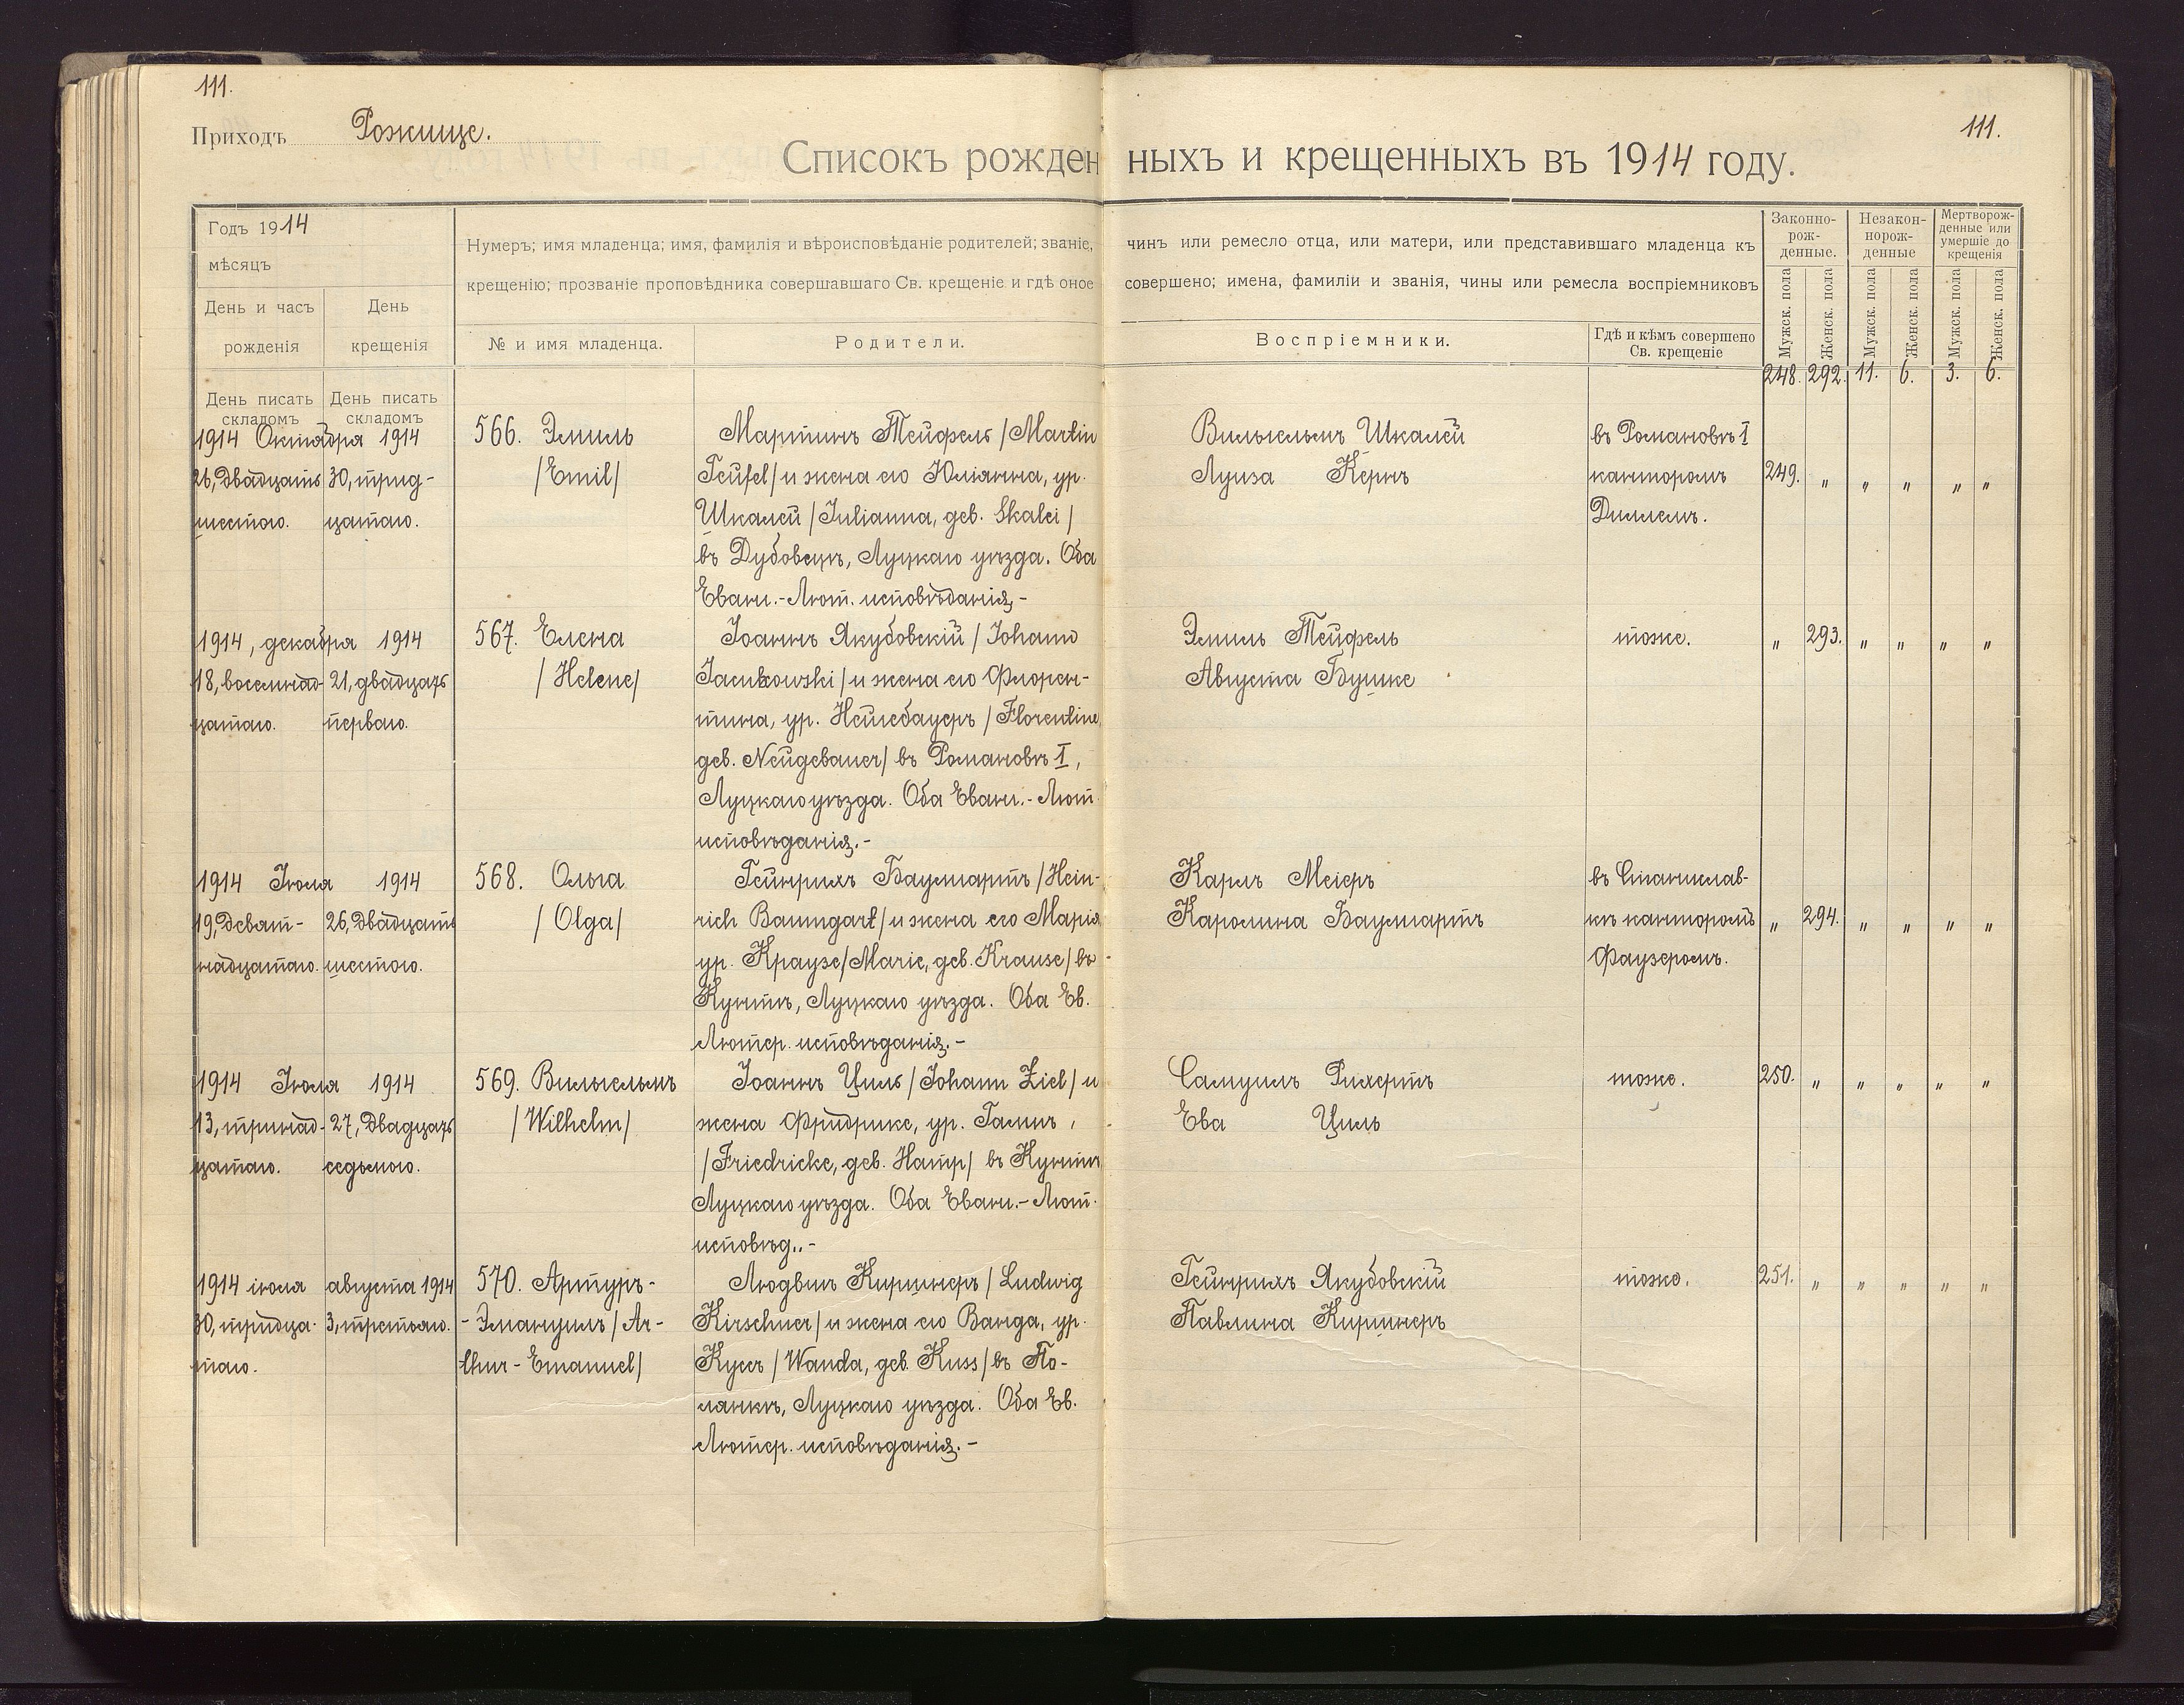 111.
111.
Приходъ Рожище.
Списокъ рожденныхъ и крещенныхъ въ 1914 году.
Годъ 1914
мѣсяцъ
День и часъ рожденія
День крещенія
Нумеръ; имя младенца; имя, фамилія и вѣроисповѣданіе родителей; званіе, чинъ или ремесло отца, или матери, или представившаго младенца къ
крещенію; прозваніе проповѣдника совершавшаго Св. крещеніе и гдѣ оное совершено; имена, фамиліи и званія, чины или ремесла воспріемниковъ
№ и имя младенца.
Родители.
Воспріемники.
Гдѣ и кѣмъ совершено
Св. крещеніе
Законно-
рож-
денные.
Незакон-
норож-
денные
Мертворож-
денные или
умершіе до
крещенія
Мужск. пола
Женск. пола
Мужск. пола
Женск. пола
Мужск. пола
Женск. пола
День писать
складомъ
День писать
складомъ
248. 292. 11. 6. 3. 6.
1914 Октября 1914
26, двадцать 30, трид-
шестого. цатаго.
566. Эмиль
/Emil/
Мартинъ Тейфель /Martin
Teüfel/ и жена его Юліанна, ур.
Шкалей /Julianna, geb. Skalei/
въ Дубовецъ, Луцкаго уѣзда. Оба
Еванг.-Лют. исповѣданія.-
Вильгельмъ Шкалей
Луиза Кернъ
въ Романовкѣ I
канторомъ
Диллемъ.
249. " " " " "
1914, декабря 1914
18, восемнад- 21, двадцать
цатаго. перваго.
567. Елена
/Helene/
Іоаннъ Якубовскій /Johann
Jacubowski/ и жена его Флорен-
тина, ур. Нейгебауеръ /Florentine,
geb. Neügebauer/ въ Романовкѣ I,
Луцкаго уѣзда. Оба Еванг.-Лют.
исповѣданія.-
Эмиль Тейфель
Августа Бушке
тоже.
" 293. " " " "
1914 Іюля 1914
19, девят- 26, двадцать
надцатаго. шестого.
568. Ольга
/Olga/
Гейнрихъ Баумгартъ /Hein-
rich Baumgart/ и жена его Марія
ур. Краузе /Marie, geb. Krause/ въ
Кунтѣ, Луцкаго уѣзда. Оба Ев.
Лютер. исповѣданія.-
Карлъ Меіеръ
Каролина Баумгартъ
въ Станислав-
кѣ канторомъ
Фаузеромъ.
" 294. " " " "
1914 Іюля 1914
13, тринад- 27, двадцать
цатаго. седьмого.
569. Вильгельмъ
/Wilhelm/
Іоаннъ Циль /Johann Ziel/ и
жена Фридрике, ур. Гампъ,
/Friedricke, geb. Hamp/ въ Кунтѣ
Луцкаго уѣзда. Оба Еванг.-Лют.
исповѣд..-
Самуилъ Рихертъ
Ева Циль
тоже.
250. " " " " "
1914 іюля августа 1914
30, тридца- 3, третьяго.
таго.
570. Артуръ-
-Эмануилъ /Ar-
thur-Emanuel/
Людвигъ Киршнеръ /Ludwig
Kirschner/ и жена его Ванда, ур.
Куссъ /Wanda, geb. Kuss/ въ По-
лянкѣ, Луцкаго уѣзда. Оба Ев.
Лютер. исповѣданія.-
Гейнрихъ Якубовскій
Павлина Киршнеръ
тоже.
251. " " " " "